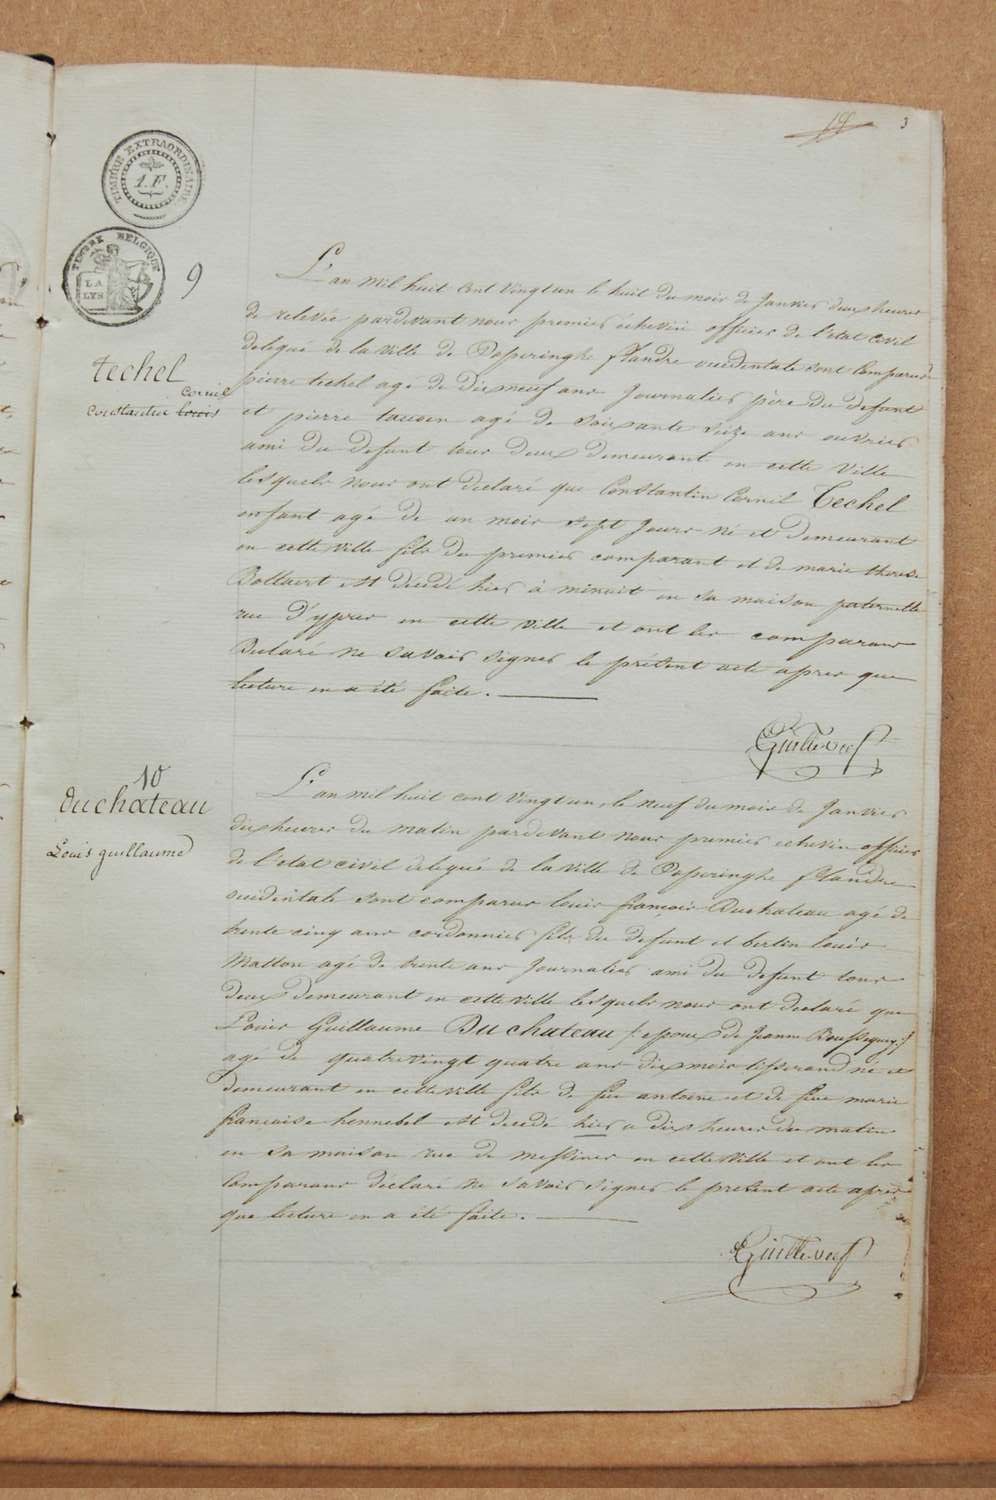 3
TIMBRE EXTRAORDINAIRE
1.F.
TIMBRE BELGIQUE
LA
LYS
9
techel
corneil
constantin louis
L'an mil huit cent vingt un le huit du mois de Janvier deux heures
de relevée pardevant nous premier échevin officier de l'etat civil
delegué de la ville de Poperinghe flandre occidentale sont comparus
pierre techel agé de dix neuf ans Journalier père du defunt
et pierre agé de soixante seize ans ouvrier
ami du defunt tous deux demeurant en cette ville
lesquels nous ont declaré que Constantin Corneil Techel
enfant agé de un mois sept jours né et demeurant
en cette ville fils du premier comparant et de marie therese
Bollaert est décédé hier à minuit en sa maison paternelle
rue d'ypres en cette ville et ont les comparans
Declaré ne savoir signer le présent acte apres que
lecture en a été faite.
10
duchateau
Louis guillaume
L'an mil huit cent vingt un, le neuf du mois de Janvier
dix heures du matin pardevant nous premier echevin officier
de l'etat civil delegué de la ville de Poperinghe flandre
occidentale sont comparus louis francois Duchateau agé de
trente cinq ans cordonnier fils du defunt et bertin louis
Matton agé de trente ans Journalier ami du defunt tous
deux demeurant en cette ville lesquels nous ont declaré que
Louis Guillaume Duchateau /: epoux de Jeanne :/
agé de quatrevingt quatre ans dix mois tisserand né et
demeurant en cette ville fils de feu antoine et de feue marie
francoise hennebel est decedé hier a dix heures du matin
en sa maison rue de messines en cette ville et ont les
comparans déclaré ne savoir signer le present acte apres
que lecture en a été faite.